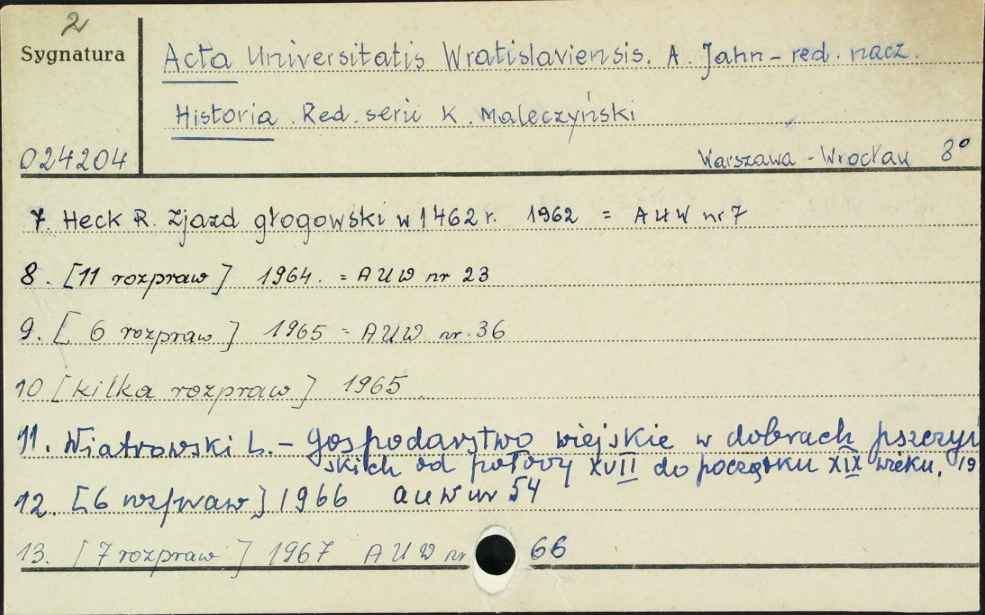 2
Sygnatura
Acta Universitatis Wratislaviensis. A. Jahn - red. nacz.
Historia. Red. serii K. Maleczyński
024204
Warszawa - Wrocław 8°
7. Heck R. Zjazd głogowski w 1462 r. 1962 = AUW nr 7
8. [11 rozpraw] 1964. = AUW nr 23
9. [6 rozpraw] 1965 = AUW nr. 36
10 [kilka rozpraw] 1965
11. Wiatrowski L. - Gospodarstwo wiejskie w dobrach pszczyń
skich od połowy XVII do początku XIX wieku. 19
12. [6 rozpraw] 1966 AUW nr 54
13. [7 rozpraw] 1967 AUW nr 66